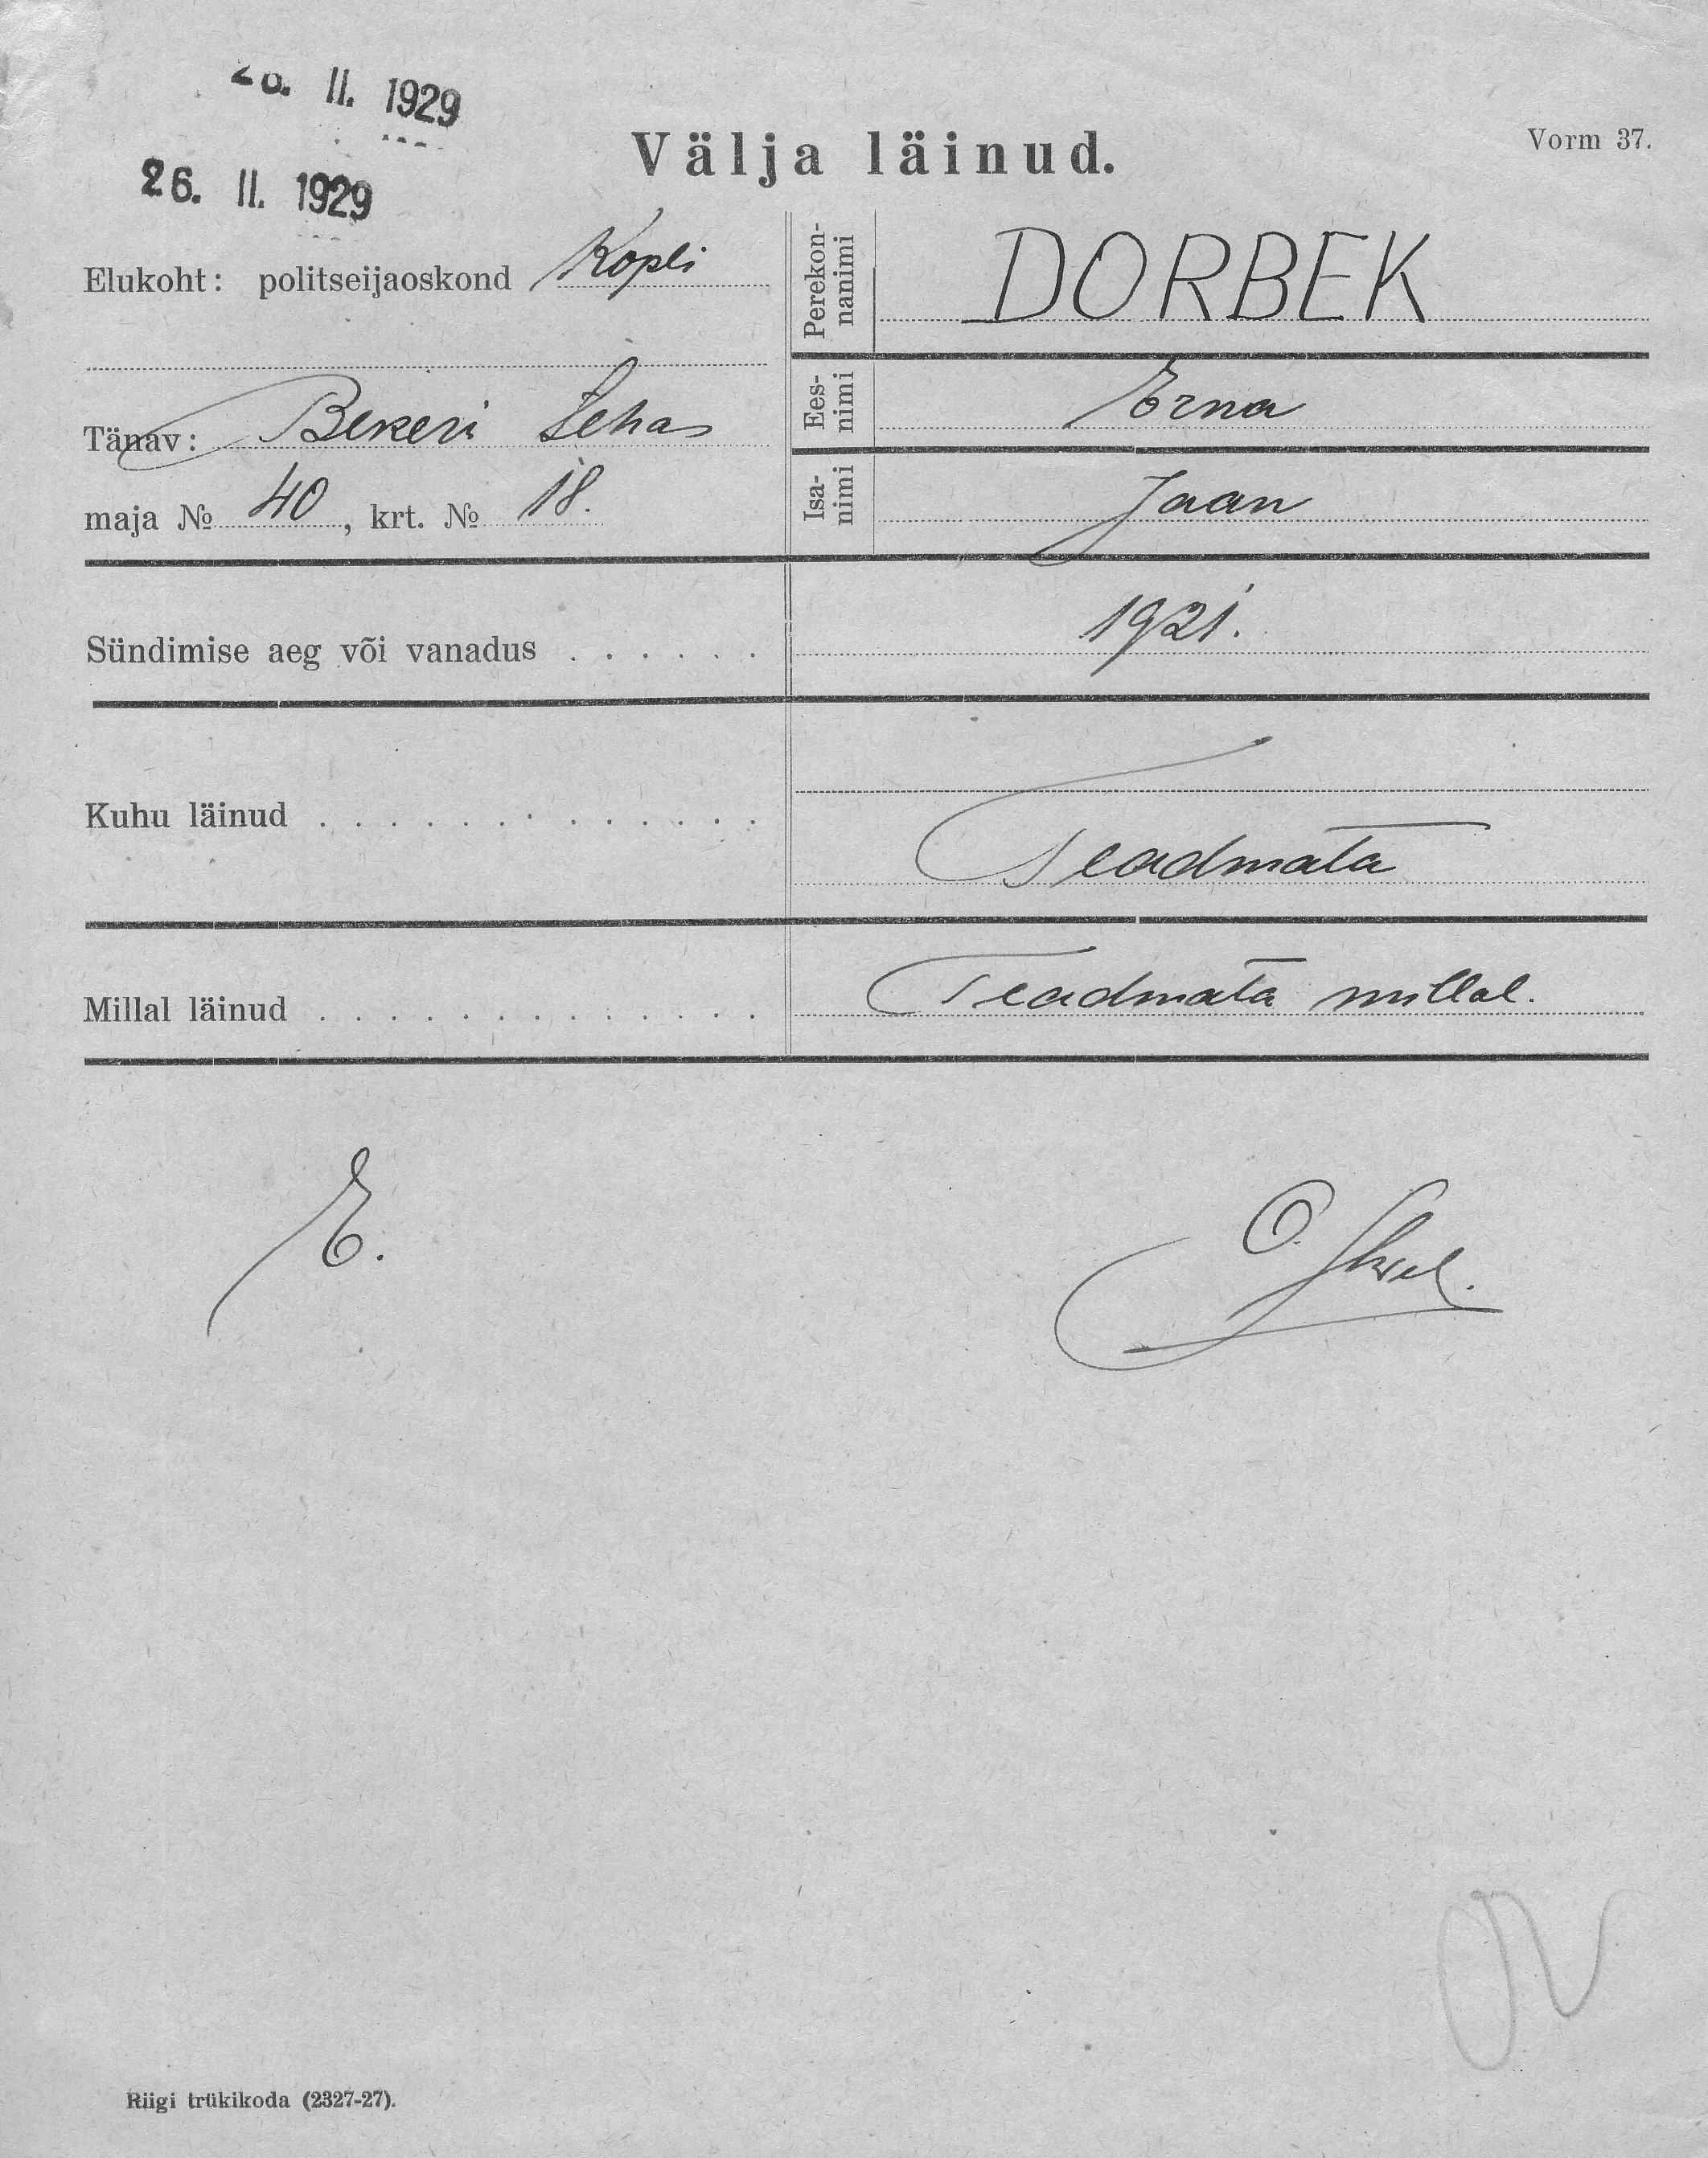 26. II. 1929
26. II. 1929
Välja läinud.
Vorm 37.
Elukoht: politseijaoskond Kopli
Tänav: Bekeri Tehas
maja № 40, krt. № 18.
Perekonnanimi DORBEK
Eesnimi Erna
Isanimi Jaan
Sündimise aeg või vanadus . . . . . . 1921.
Kuhu läinud . . . . . . . . . . . . . Teadmata
Millal läinud . . . . . . . . . . . . . Teadmata millal.
E.
O.
Riigi trükikoda (2327-27).